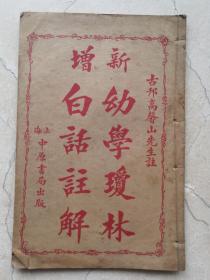 古邗高馨山先生註
新增
幼學瓊林
白話註解
上海中原書局出版